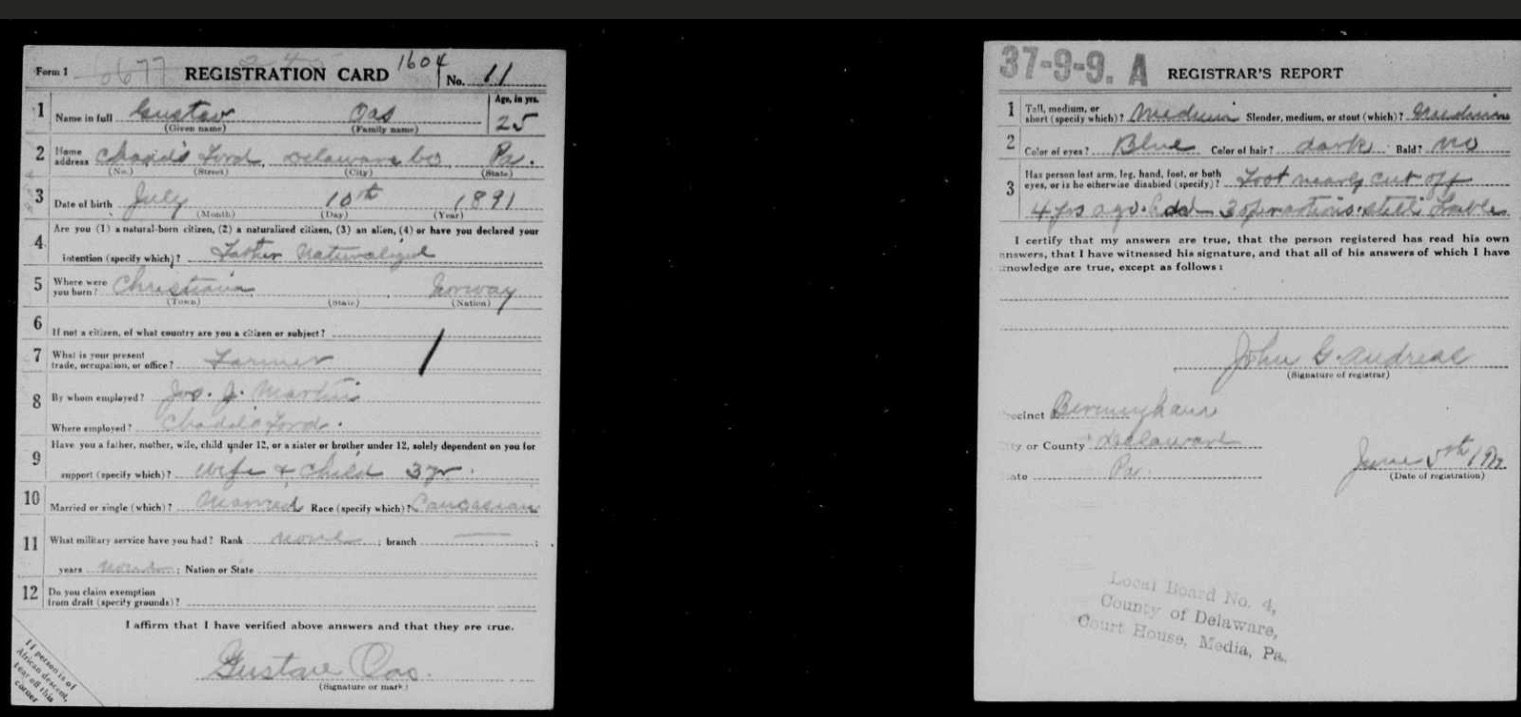 Form 1 0677 REGISTRATION CARD 1604 No. 11
1 Name in full Gustav Oas Age, in yrs. 25
(Given name) (Family name)
2 Home address Chadd's Ford, Delaware Co Pa.
(No.) (Street) (City) (State)
3 Date of birth July 10th 1891
(Month) (Day) (Year)
4 Are you (1) a natural-born citizen, (2) a naturalized citizen, (3) an alien, (4) or have you declared your
intention (specify which)? Father Naturalized
5 Where were you born? Christiania, Norway
(Town) (State) (Nation)
6 If not a citizen, of what country are you a citizen or subject?
7 What is your present trade, occupation, or office? Farmer
8 By whom employed? Jos. J. Martin
Where employed? Chadd's Ford.
9 Have you a father, mother, wife, child under 12, or a sister or brother under 12, solely dependent on you for
support (specify which)? Wife & Child 3 yr.
10 Married or single (which)? Married Race (specify which)? Caucasian
11 What military service have you had? Rank None ; branch ;
years ; Nation or State
12 Do you claim exemption from draft (specify grounds)?
I affirm that I have verified above answers and that they are true.
Gustav Oas.
(Signature or mark)
If person is of
African descent,
tear off this
corner
37-9-9. A REGISTRAR'S REPORT
1 Tall, medium, or short (specify which)? Medium Slender, medium, or stout (which)?
2 Color of eyes? Blue Color of hair? dark Bald? No
3 Has person lost arm, leg, hand, foot, or both eyes, or is he otherwise disabled (specify)? Foot nearly cut off
4 yrs ago. had 3 operations. still
I certify that my answers are true, that the person registered has read his own
answers, that I have witnessed his signature, and that all of his answers of which I have
knowledge are true, except as follows:
John G. Andreas
(Signature of registrar)
Precinct Birmingham
City or County Delaware
State Pa.
June 5th 1917
(Date of registration)
Local Board No. 4,
County of Delaware,
Court House, Media, Pa.